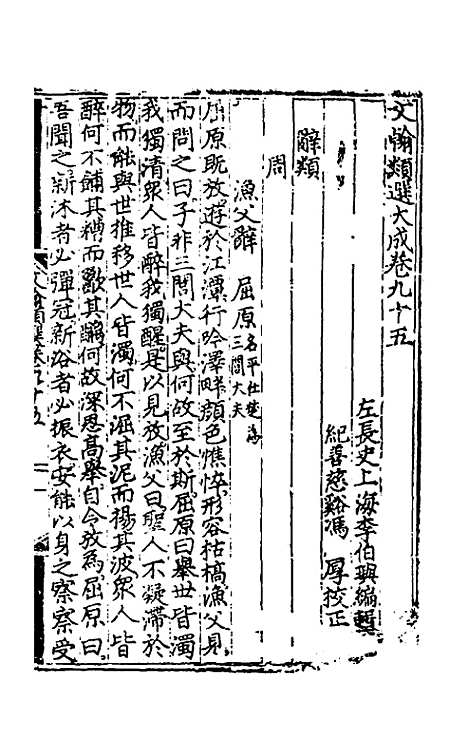 文翰類選大成卷九十五
左長史上海李伯璵編輯
紀善慈谿馮　厚校正
辭類
周
漁父辭　屈原名平仕楚為三閭大夫
屈原既放遊於江潭行吟澤畔顏色憔悴形容枯槁漁父見
而問之曰子非三閭大夫與何故至於斯屈原曰舉世皆濁
我獨清衆人皆醉我獨醒是以見放漁父曰聖人不凝滯於
物而能與世推移世人皆濁何不淈其泥而揚其波衆人皆
醉何不餔其糟而歠其醨何故深思高舉自令放為屈原曰
吾聞之新沐者必彈冠新浴者必振衣安能以身之察察受
文翰類選卷九十五